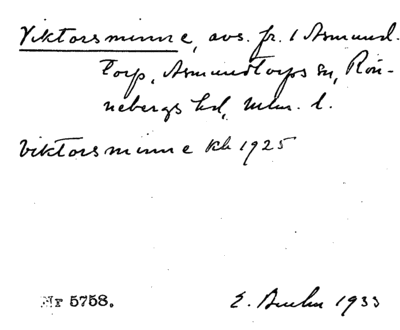 Viktorsminne, avs. fr. 1 Asmund-
torp, Asmundtorps sn, Rön-
nebergs hd, Mlm. l.
Viktorsminne kb 1925
Nr 5758.
E. 1933